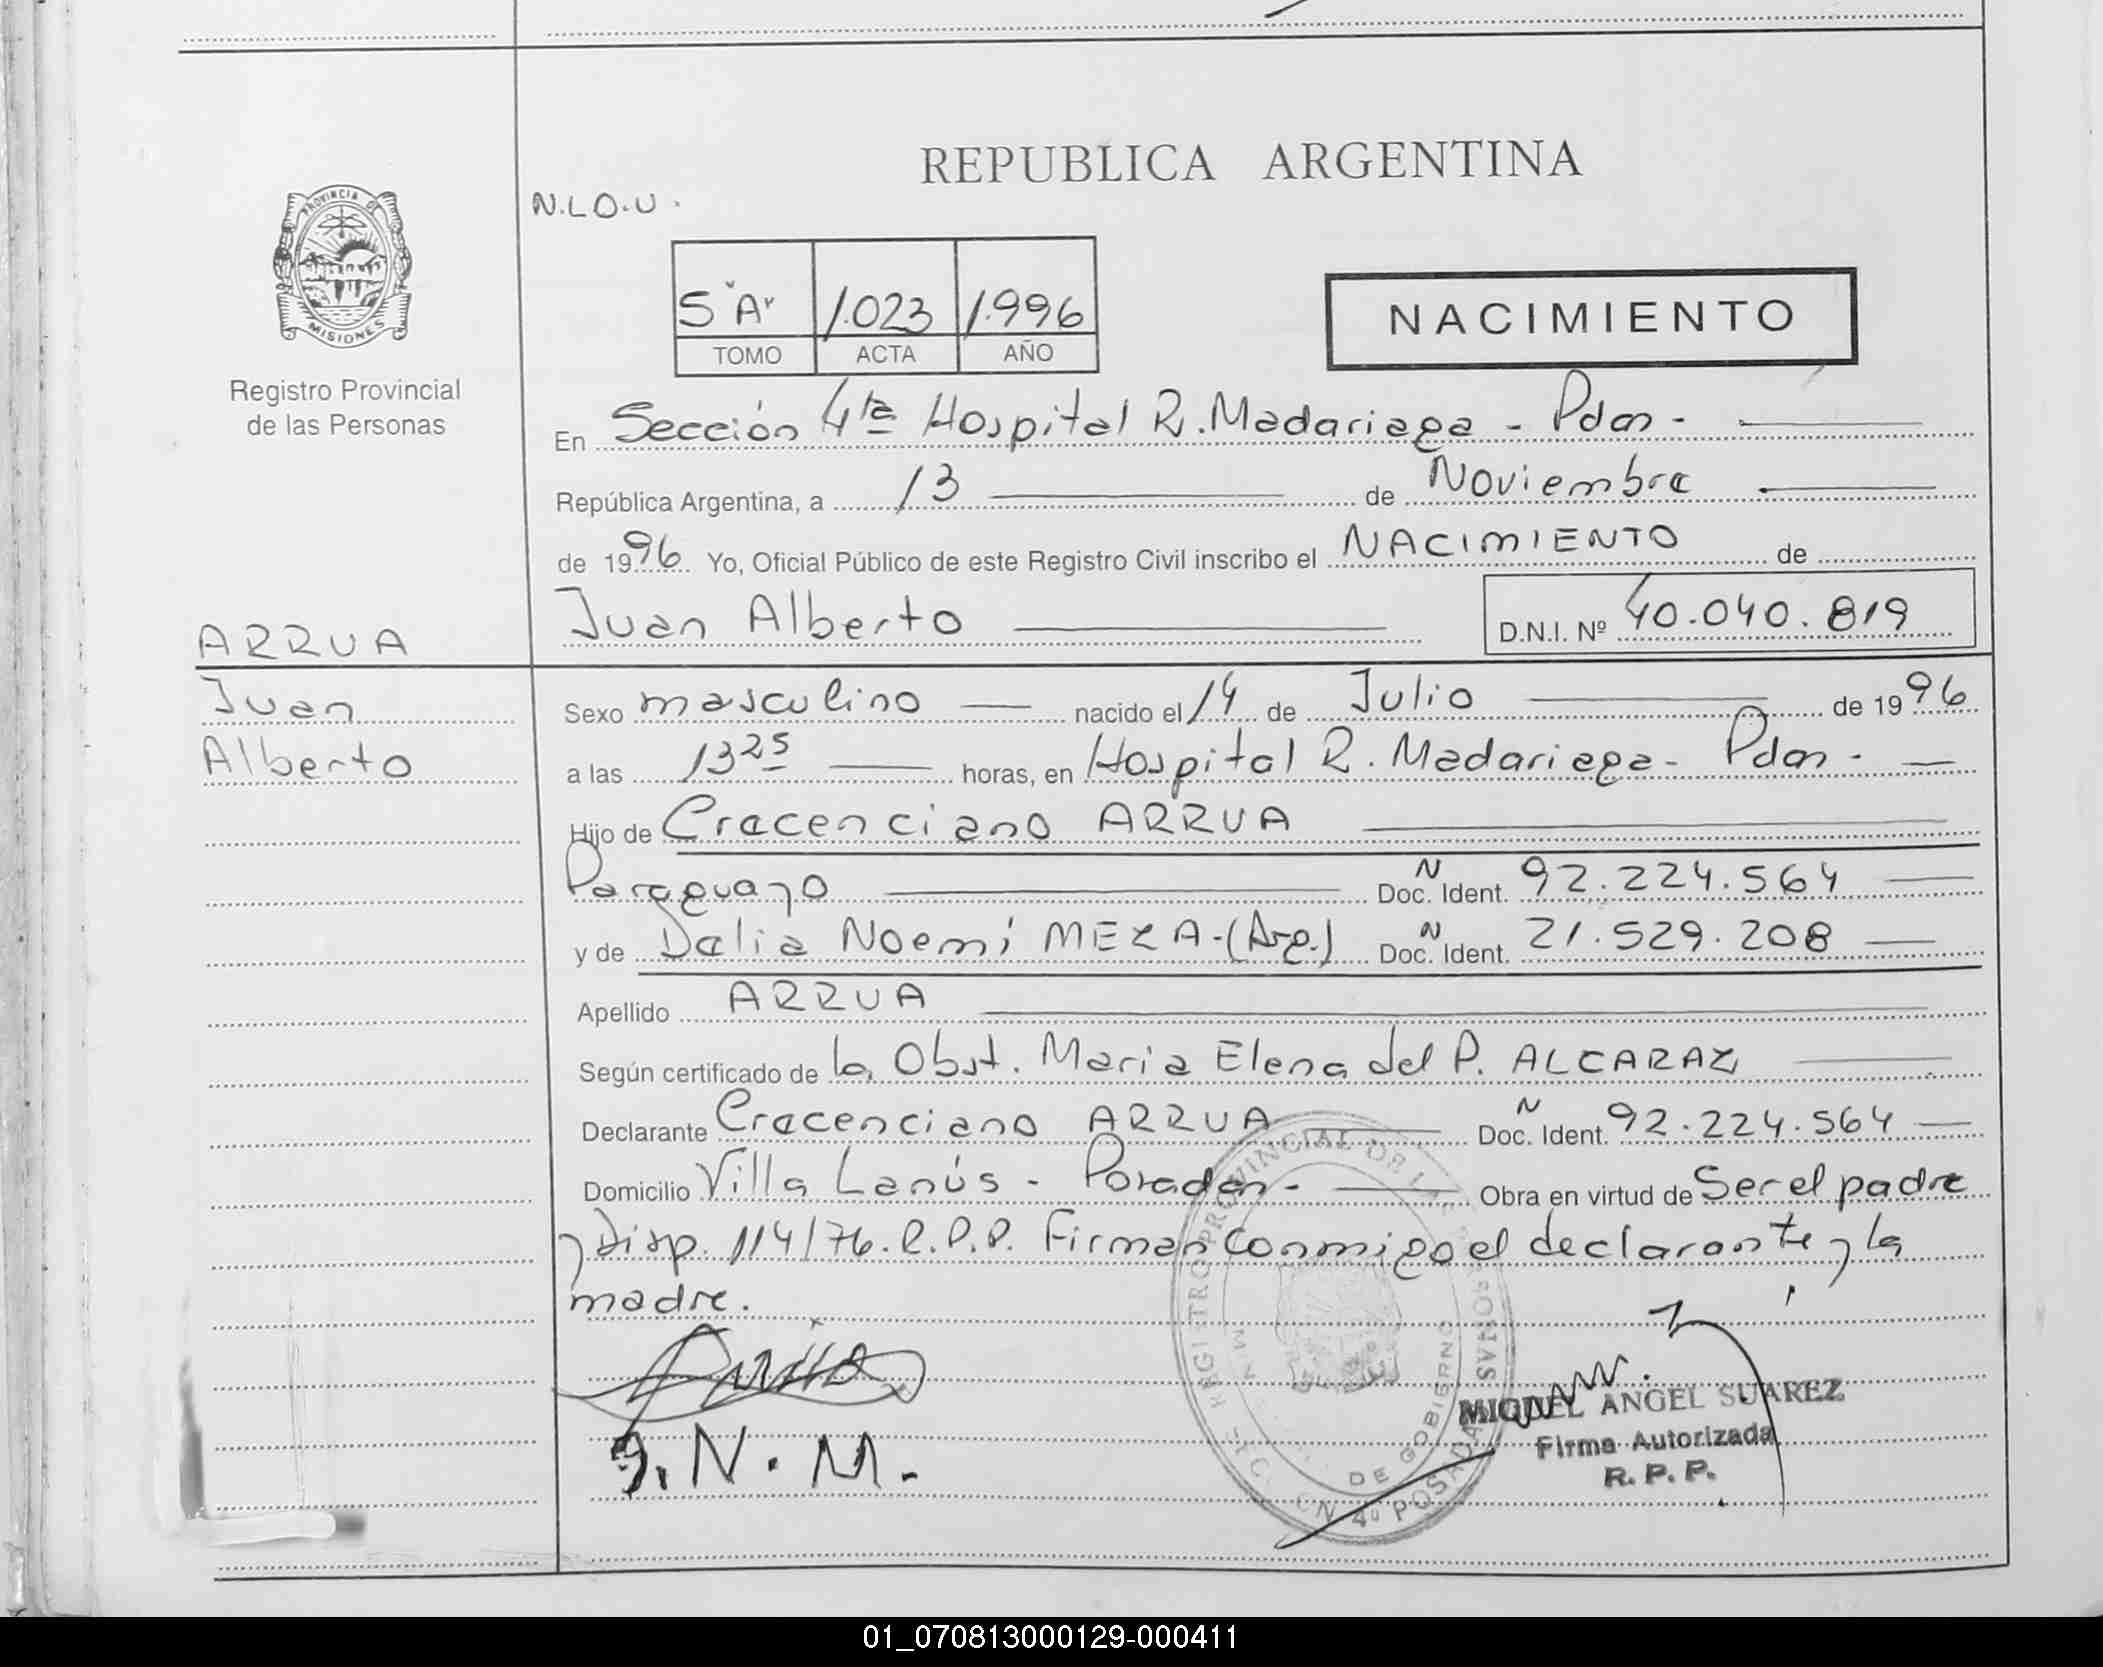 REPUBLICA ARGENTINA
PROVINCIA D
MISIONES
Registro Provincial
de las Personas
N.L.O.U.
5 "A" 1.023 1.996
TOMO ACTA AÑO
NACIMIENTO
En Sección 4ta Hospital R. Madariaga - Pdas -
República Argentina, a 13 de Noviembre
de 1996. Yo, Oficial Público de este Registro Civil inscribo el NACIMIENTO de
Juan Alberto D.N.I. Nº 40.040.819
ARRUA
Juan
Alberto
Sexo masculino nacido el 14 de Julio de 1996
a las 13 25 horas, en Hospital R. Madariaga - Pdas -
Hijo de Crecenciano ARRUA
Paraguayo N Doc. Ident. 92.224.564
y de Dalia Noemí MEZA - (Arg.) N Doc. Ident. 21.529.208
Apellido ARRUA
Según certificado de la Obst. Maria Elena del P. ALCARAZ
Declarante Crecenciano ARRUA N Doc. Ident. 92.224.564
Domicilio Villa Lanús - Posadas - Obra en virtud de Ser el padre
y Disp. 114/76. R.P.P. Firman conmigo el declarante y la
madre.
D. N. M.
MIGUEL ANGEL SUAREZ
Firma Autorizada
R. P. P.
01_070813000129-000411